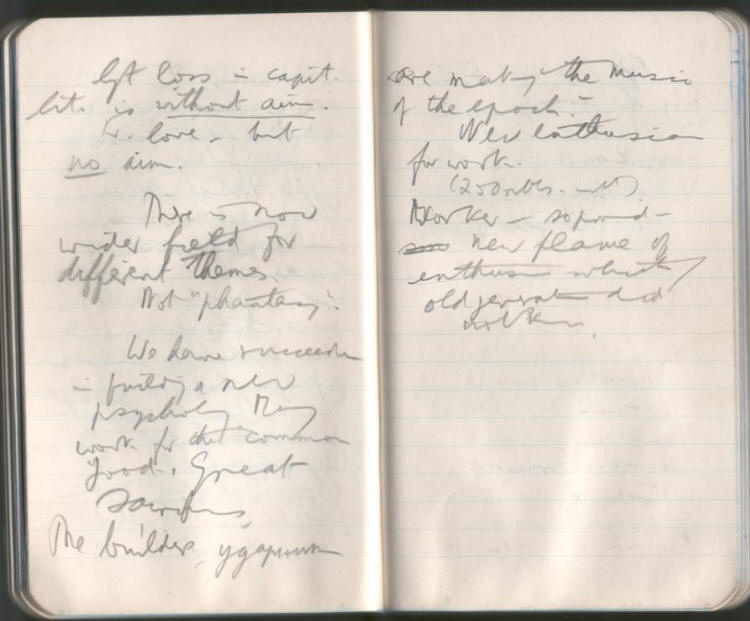 loss in capit.
lit. is without aim.
love - but
no aim.
There is now
wider field for
different themes
Not "phantasy".
We have succeeded
in building a new
psychology They
work for the common
good. Great
Sacrifices
The builders, ударники
are making the music
of the epoch. -
New Enthusiasm
for work.
(200 rbls.
Worker - so proud -
new flame of
enthusiasm which
old generation did
not know.